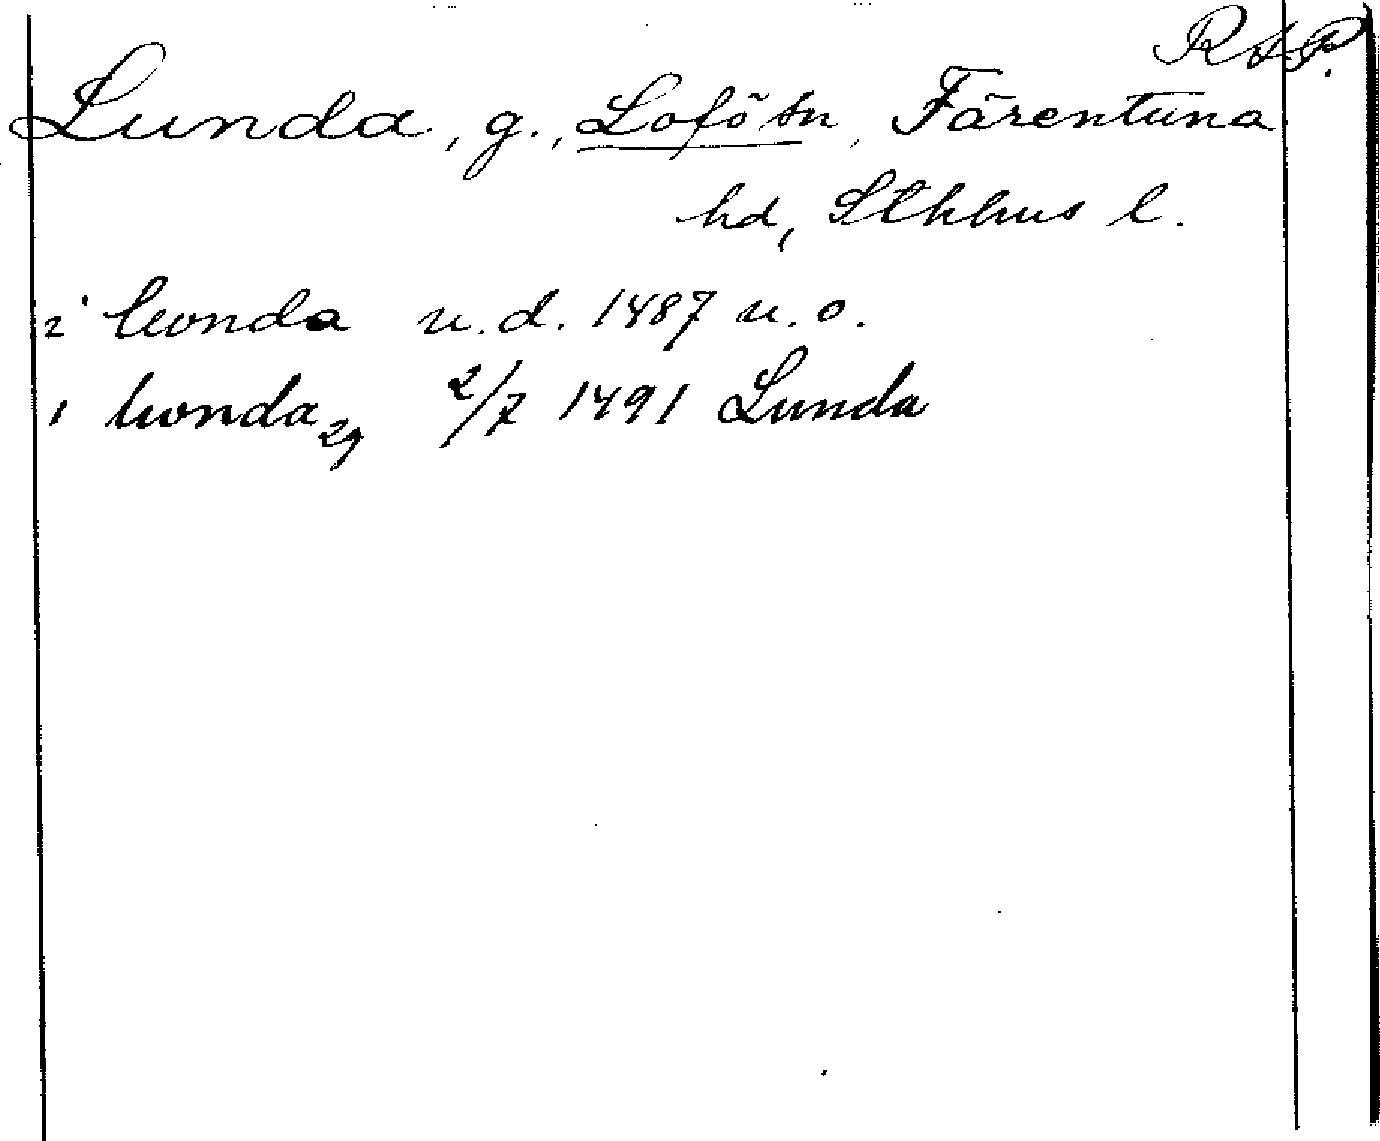 R A P.
Lunda, g., Lofö sn, Färentuna
hd, Sthlms l.
i lwnda u. d. 1487 u. o.
i lwnda 2/7 1491 Lunda